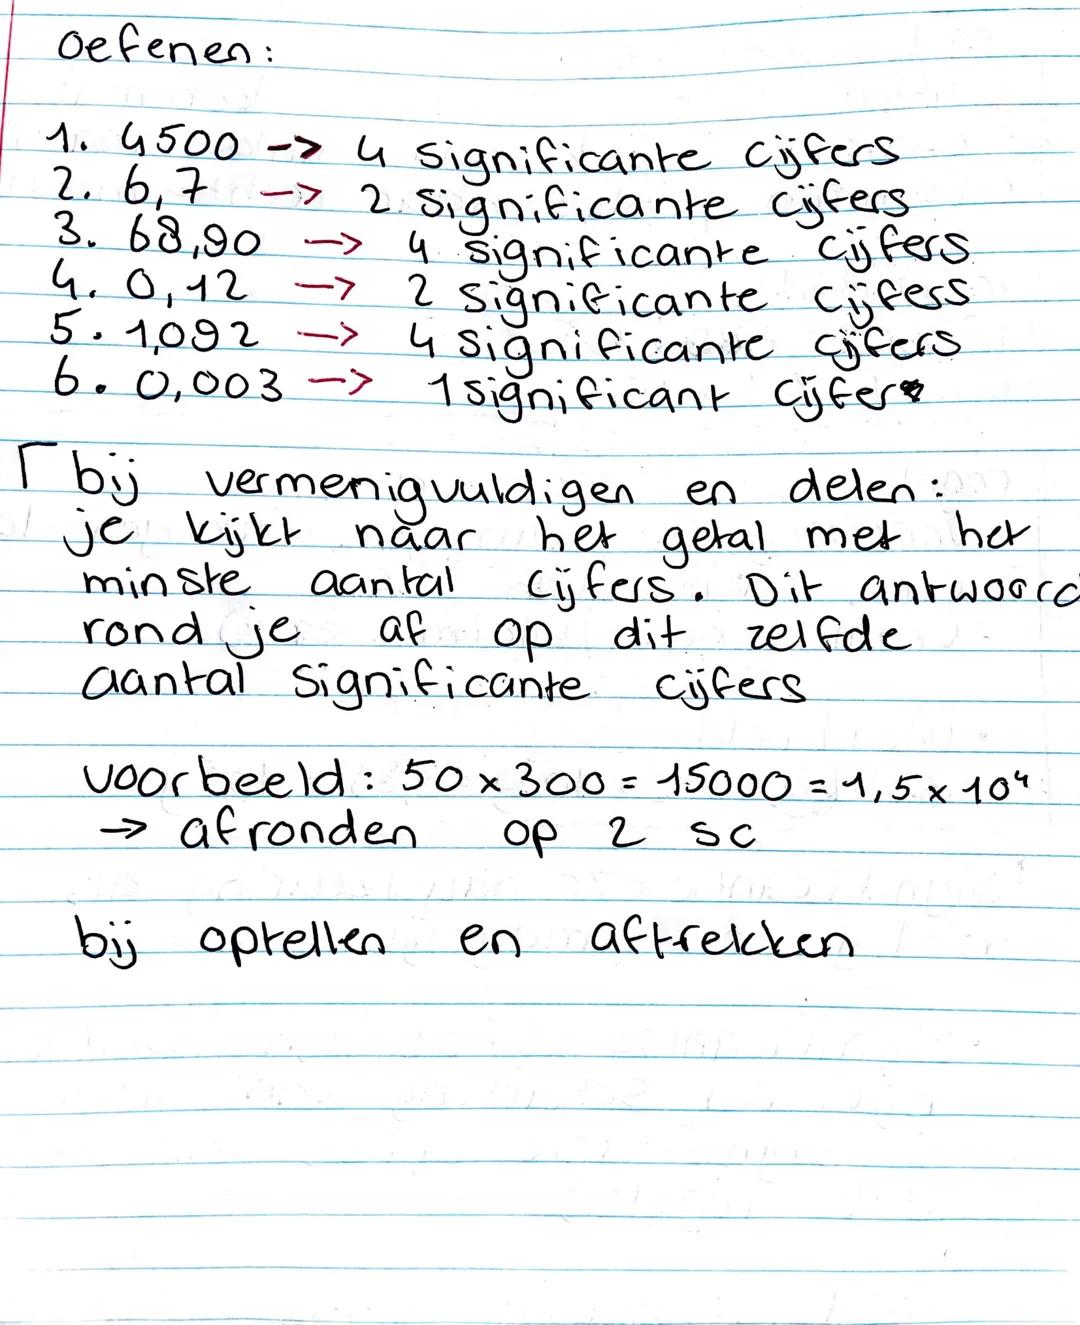 Oefenen:
1. 4500 -> 4 significante cijfers
2. 6,7 -> 2 significante cijfers
3. 68,90 -> 4 significante cijfers
4. 0,12 -> 2 significante cijfers
5. 1,092 -> 4 significante cijfers
6. 0,003 -> 1 significant cijfer
bij vermenigvuldigen en delen:
je kijkt naar het getal met het
minste aantal cijfers. Dit antwoord
rond je af op dit zelfde
aantal significante cijfers
voorbeeld: 50 x 300 = 15000 = 1,5 x 10⁴
-> afronden op 2 sc
bij optellen en aftrekken